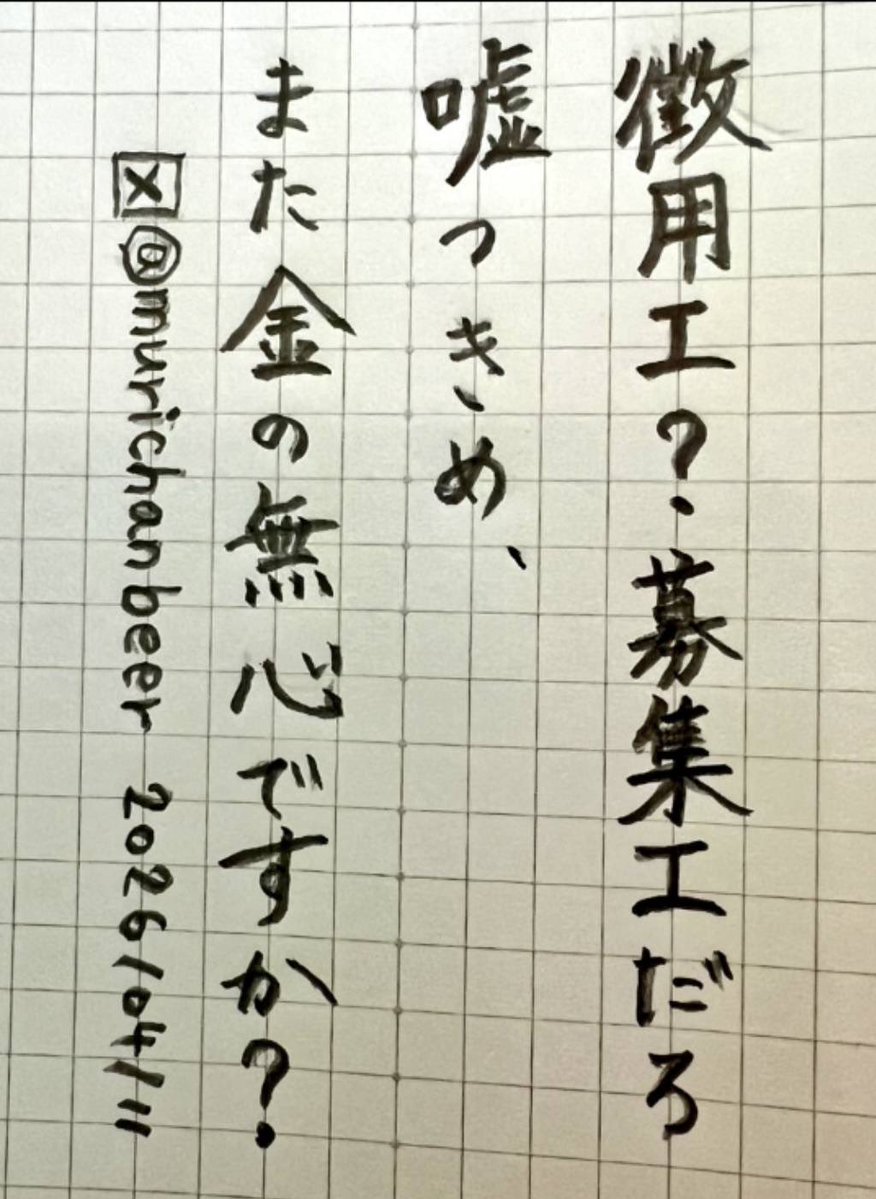 徴用工？募集工だろ
嘘つきめ、
また金の無心ですか？
X@murichanbeer 2026/04/11